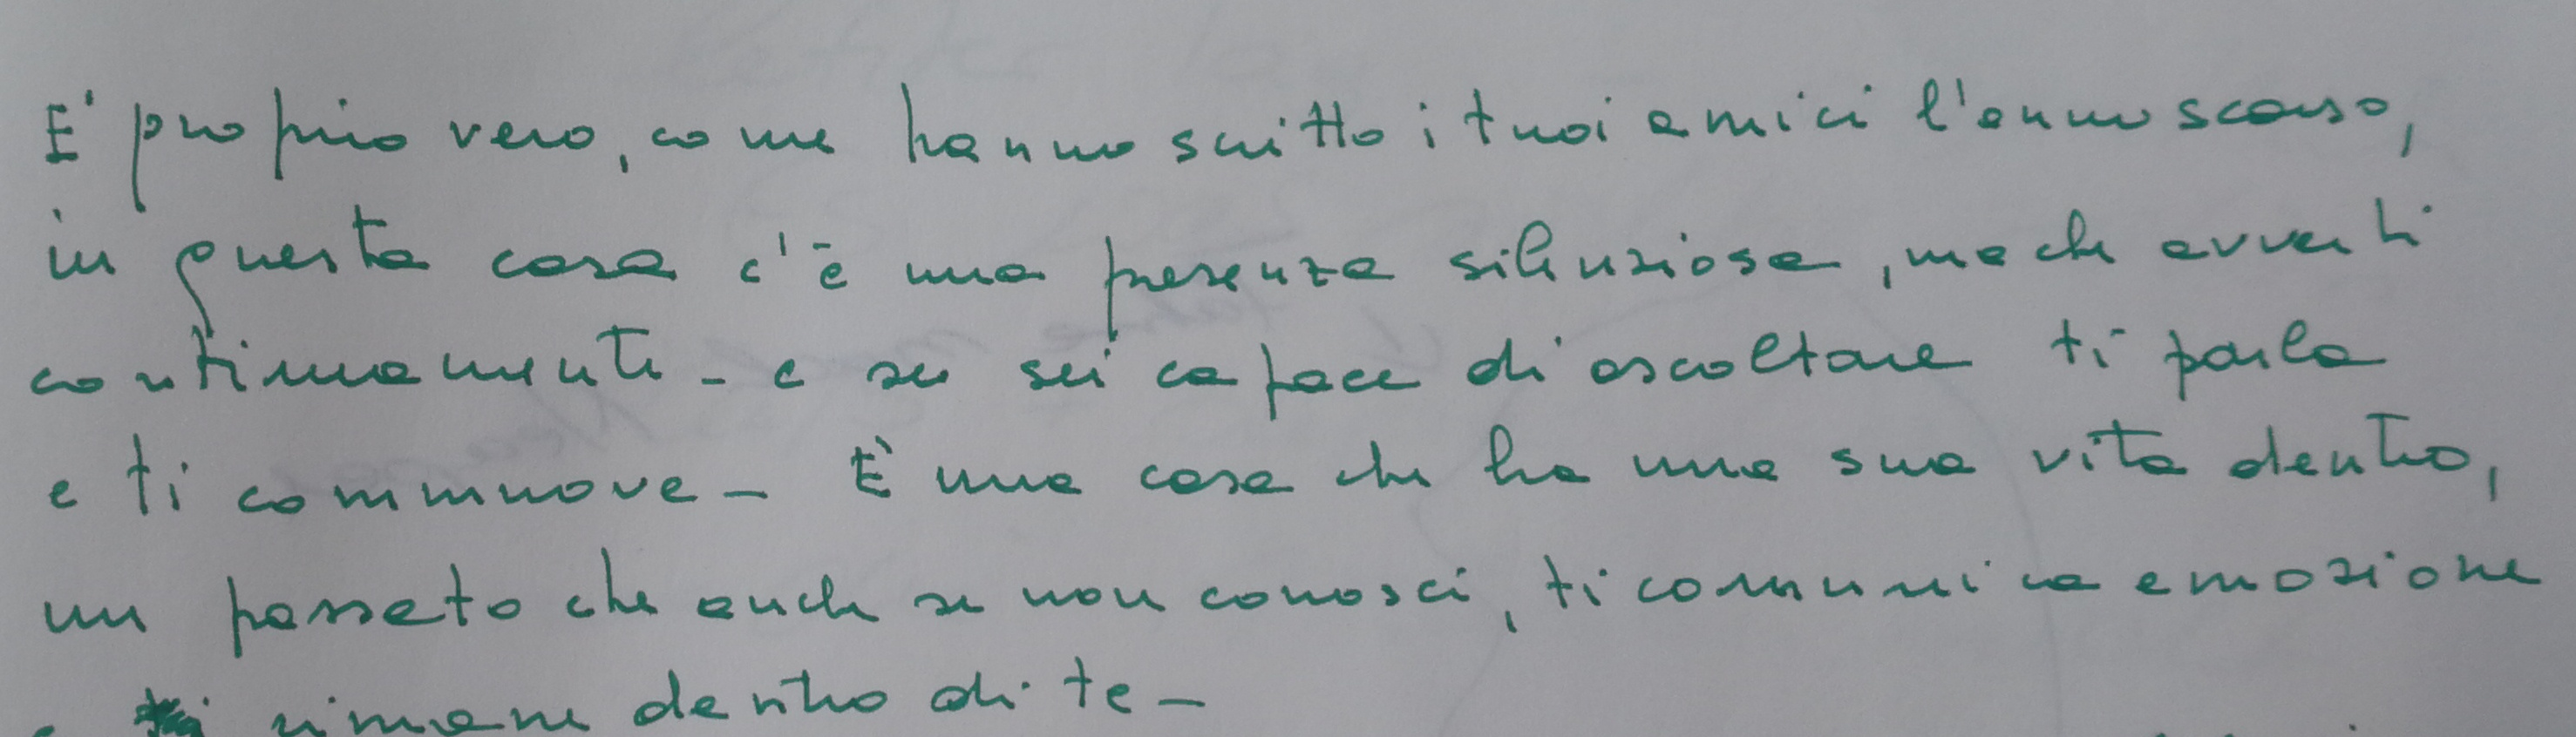 E' proprio vero, come hanno scritto i tuoi amici l'anno scorso,
in questa casa c'è una presenza silenziosa, ma che avverti
continuamente - e se sei capace di ascoltare ti parla
e ti commuove - È una casa che ha una sua vita dentro,
un passato che anche se non conosci, ti comunica emozione
e rimane dentro di te -